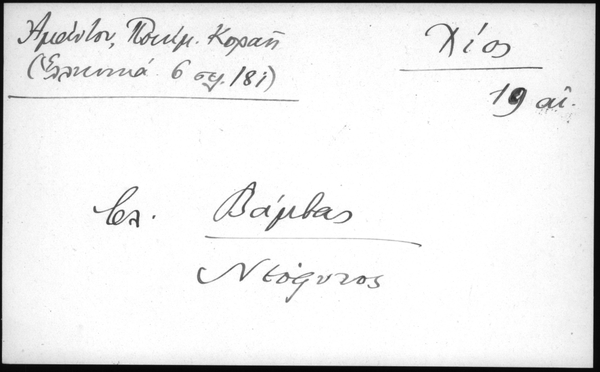 Ἀμάντου, Ποιήμ. Κοραῆ
(Ἑλληνικά 6 σελ. 181)
Χίος
19 αἰ.
βλ. Βάμβας
Νεόφυτος